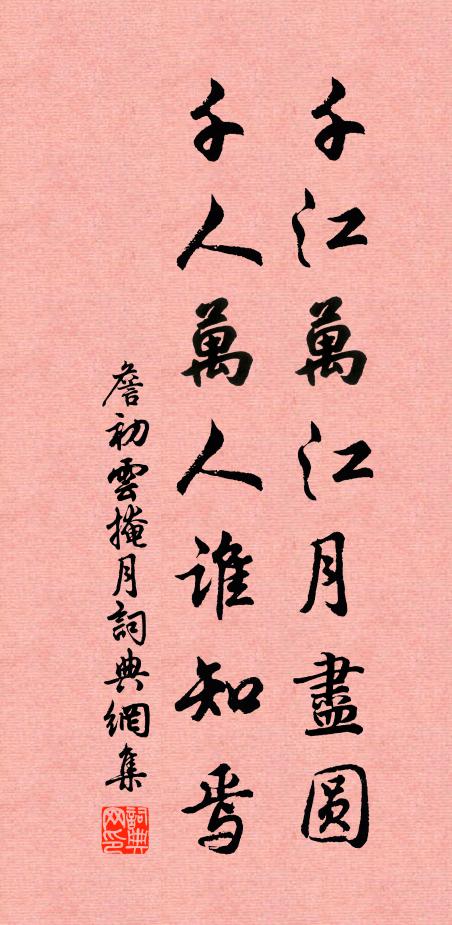 千江萬江月盡圆
千人萬人誰知焉
詹初雲掩月詞典網集
詞典网印